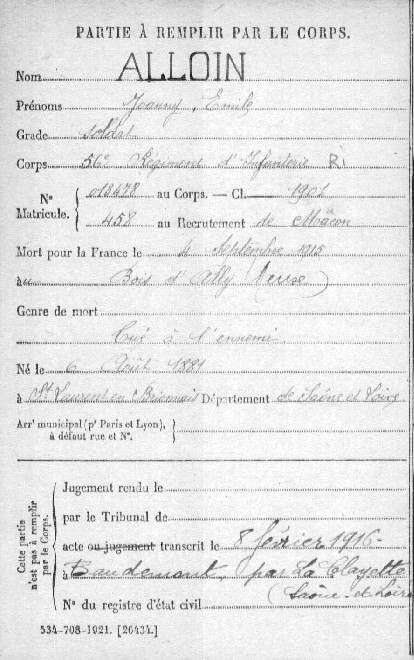 PARTIE À REMPLIR PAR LE CORPS.
Nom ALLOIN
Prénoms Joanny, Emile
Grade soldat
Corps 56e Régiment d'Infanterie
No Matricule. { 013478 au Corps. — Cl. 1901
458 au Recrutement de Mâcon
Mort pour la France le 4 Septembre 1915
au Bois d'Ailly Meuse)
Genre de mort
Tué à l'ennemi
Né le 6 Août 1881
à St Laurent en Brionnais Département de Saône et Loire
Arrt municipal (pr Paris et Lyon), à défaut rue et No. }
Cette partie n'est pas à remplir par le Corps.
Jugement rendu le
par le Tribunal de
acte ou jugement transcrit le 8 février 1916-
à Baudemont, par La Clayette
(Saône-et-Loire
No du registre d'état civil
534-708-1921. [26434.]